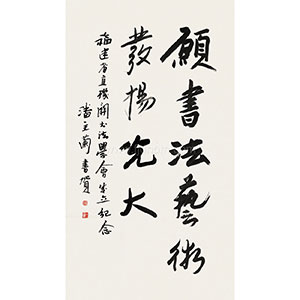 願書法藝術
發揚光大
福建省直機關书法學會成立紀念
潘主蘭書賀